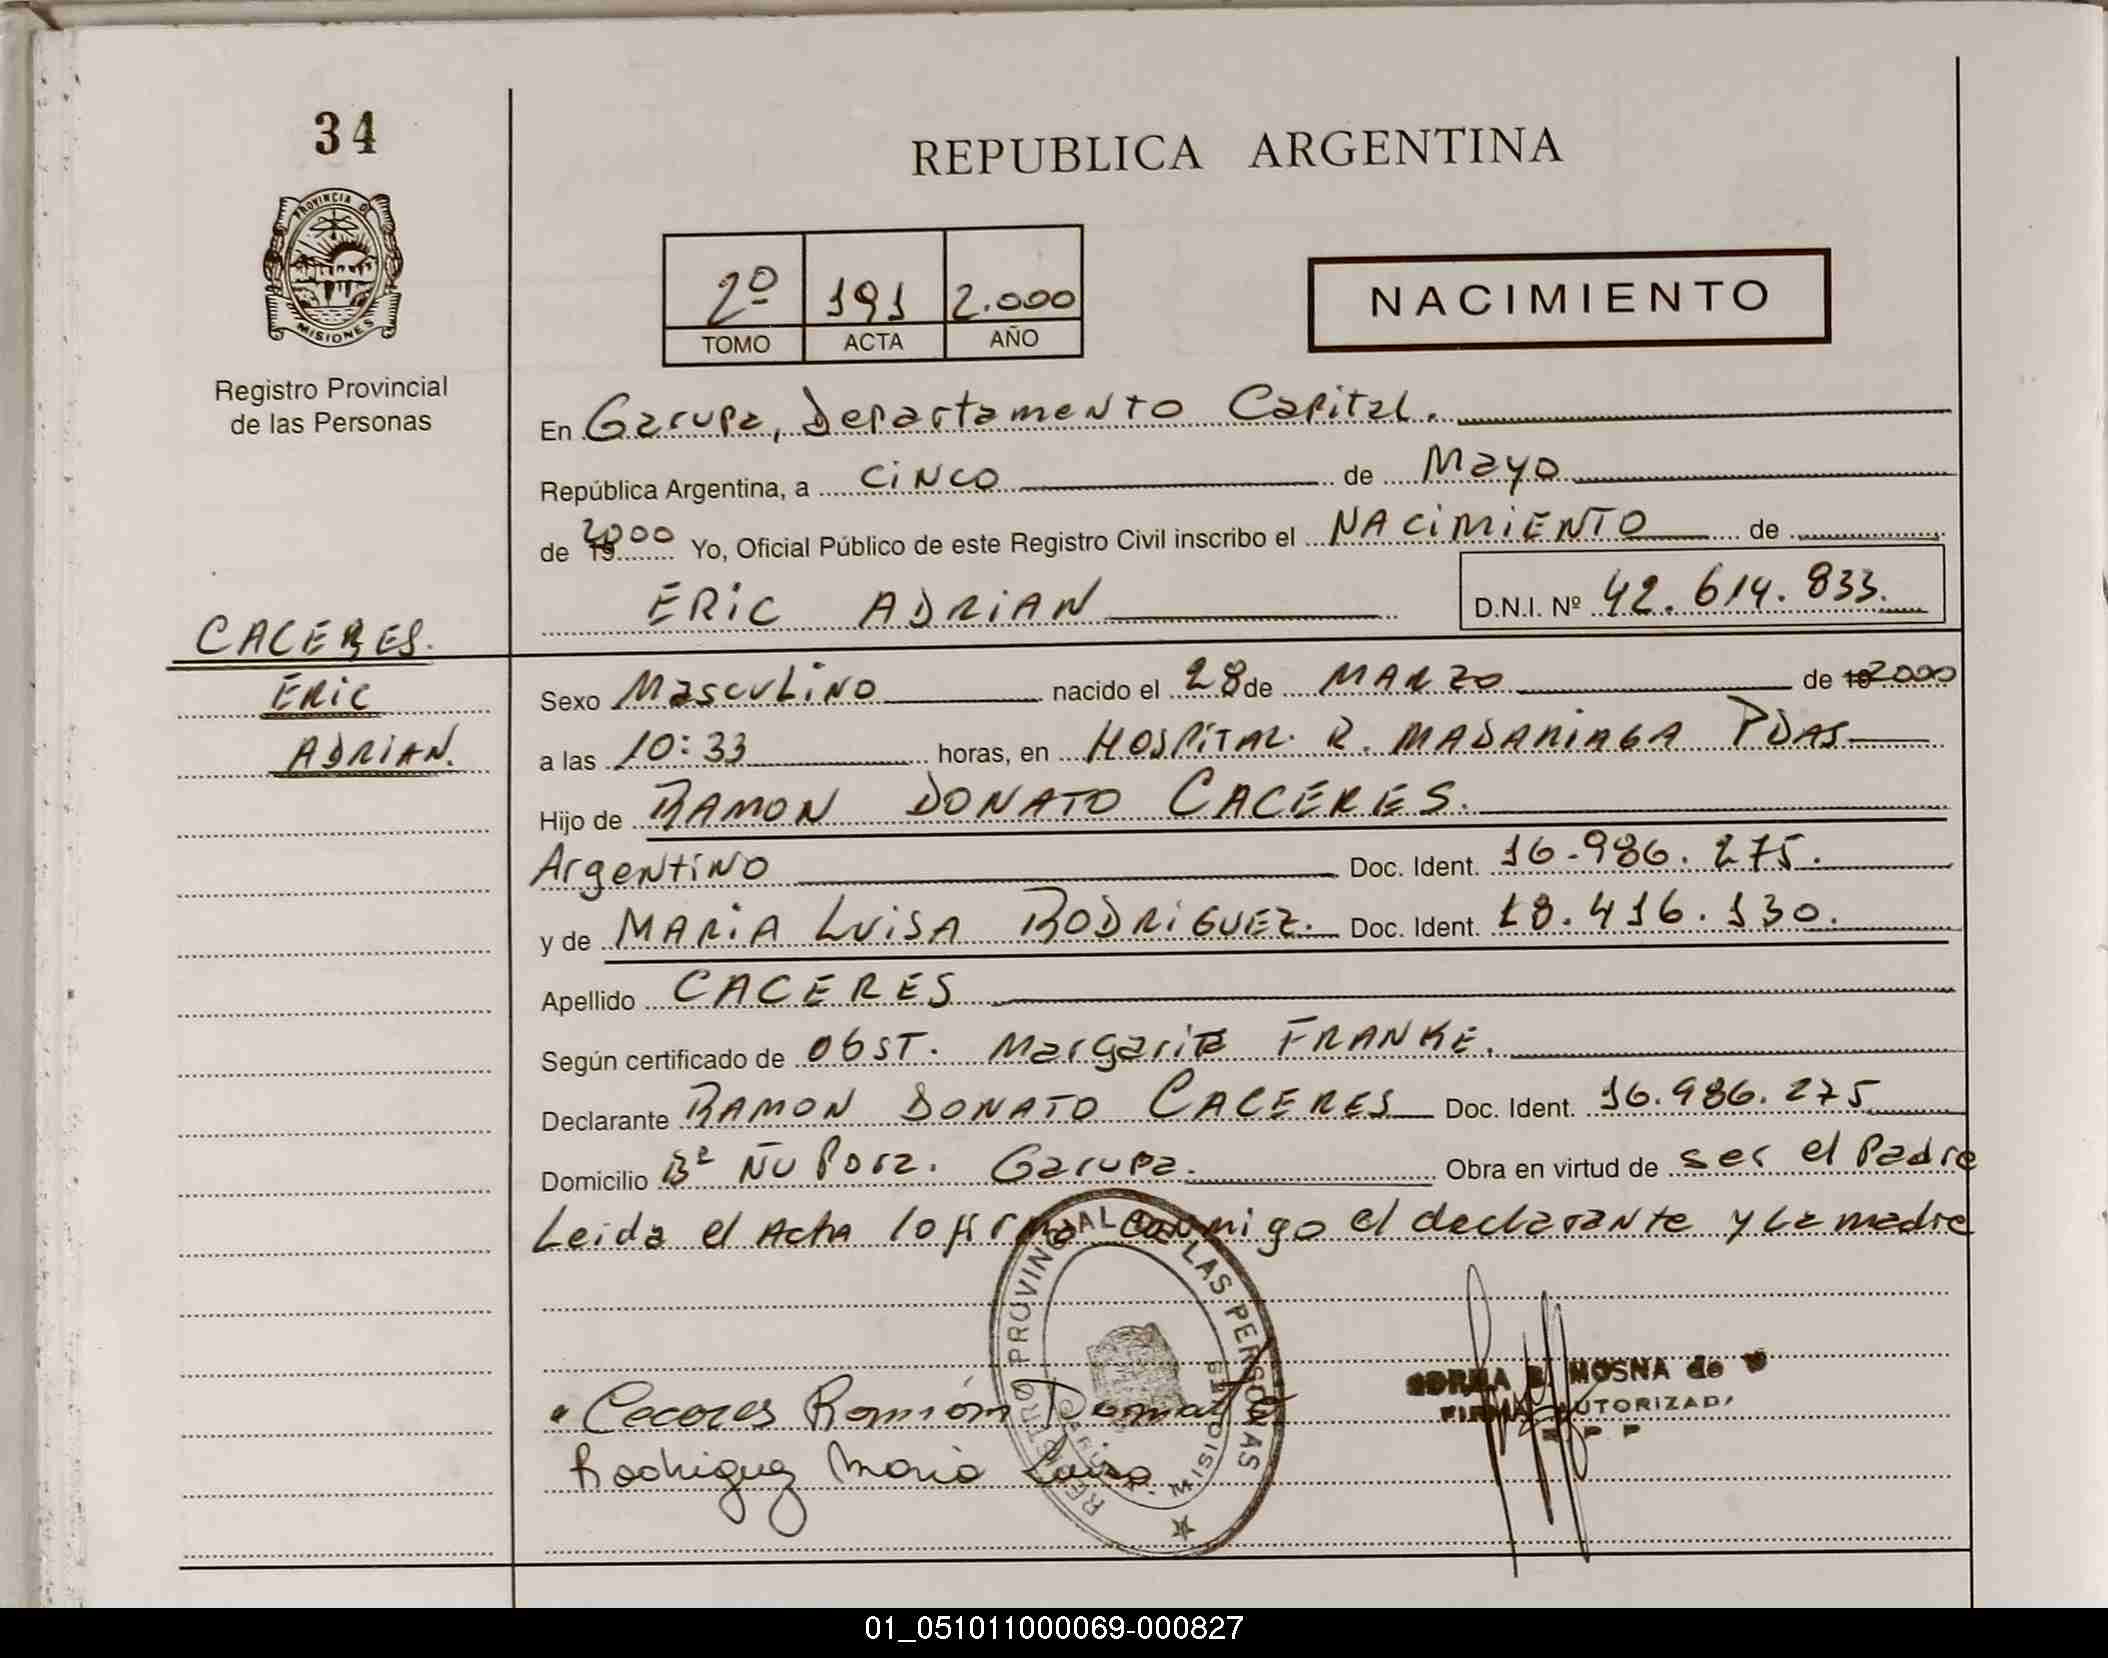 34
PROVINCIA D
MISIONES
Registro Provincial
de las Personas
REPUBLICA ARGENTINA
2º 191 2.000
TOMO ACTA AÑO
NACIMIENTO
En Garupa, Departamento Capital.
República Argentina, a cinco de Mayo
de 2000 Yo, Oficial Público de este Registro Civil inscribo el NACIMIENTO de
ERIC ADRIAN D.N.I. Nº 42.614.833.
CACERES.
ERIC
ADRIAN.
Sexo Masculino nacido el 28 de MARZO de 2000
a las 10:33 horas, en HOSPITAL R. MADARIAGA PDAS
Hijo de RAMON DONATO CACERES.
Argentino Doc. Ident. 16.986.275.
y de MARIA LUISA RODRIGUEZ. Doc. Ident. 18.416.130.
Apellido CACERES
Según certificado de Obst. Margarita FRANKE.
Declarante RAMON DONATO CACERES Doc. Ident. 16.986.275
Domicilio Bº Ñu Pora. Garupa. Obra en virtud de ser el Padre
Leida el Acta lo firma conmigo el declarante y la madre
REGISTRO PROVINCIAL DE LAS PERSONAS
MISIONES
MOSNA de
FIRMA AUTORIZADA
R. P. P
Caceres Ramón Donato
Rodriguez Maria Luisa
01_051011000069-000827